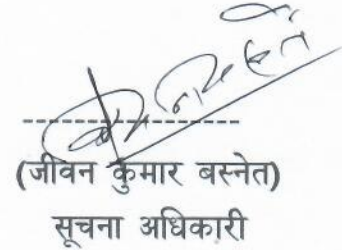 (जीवन कुमार बस्नेत)
सूचना अधिकारी